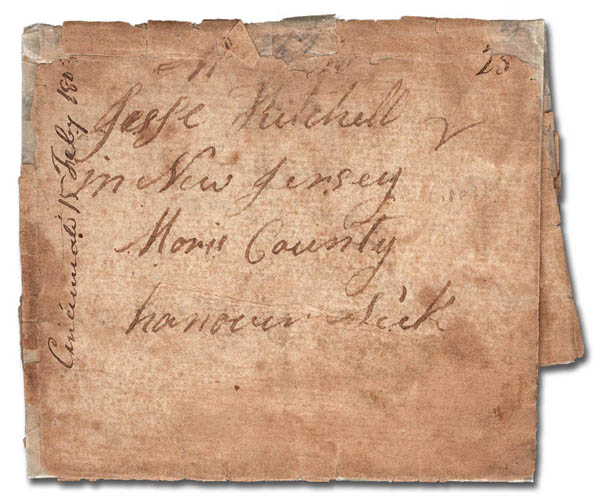 25
Jesse Kitchell
in New Jersey
Moris County
hanover Neck
Cincinnati 15 Feby